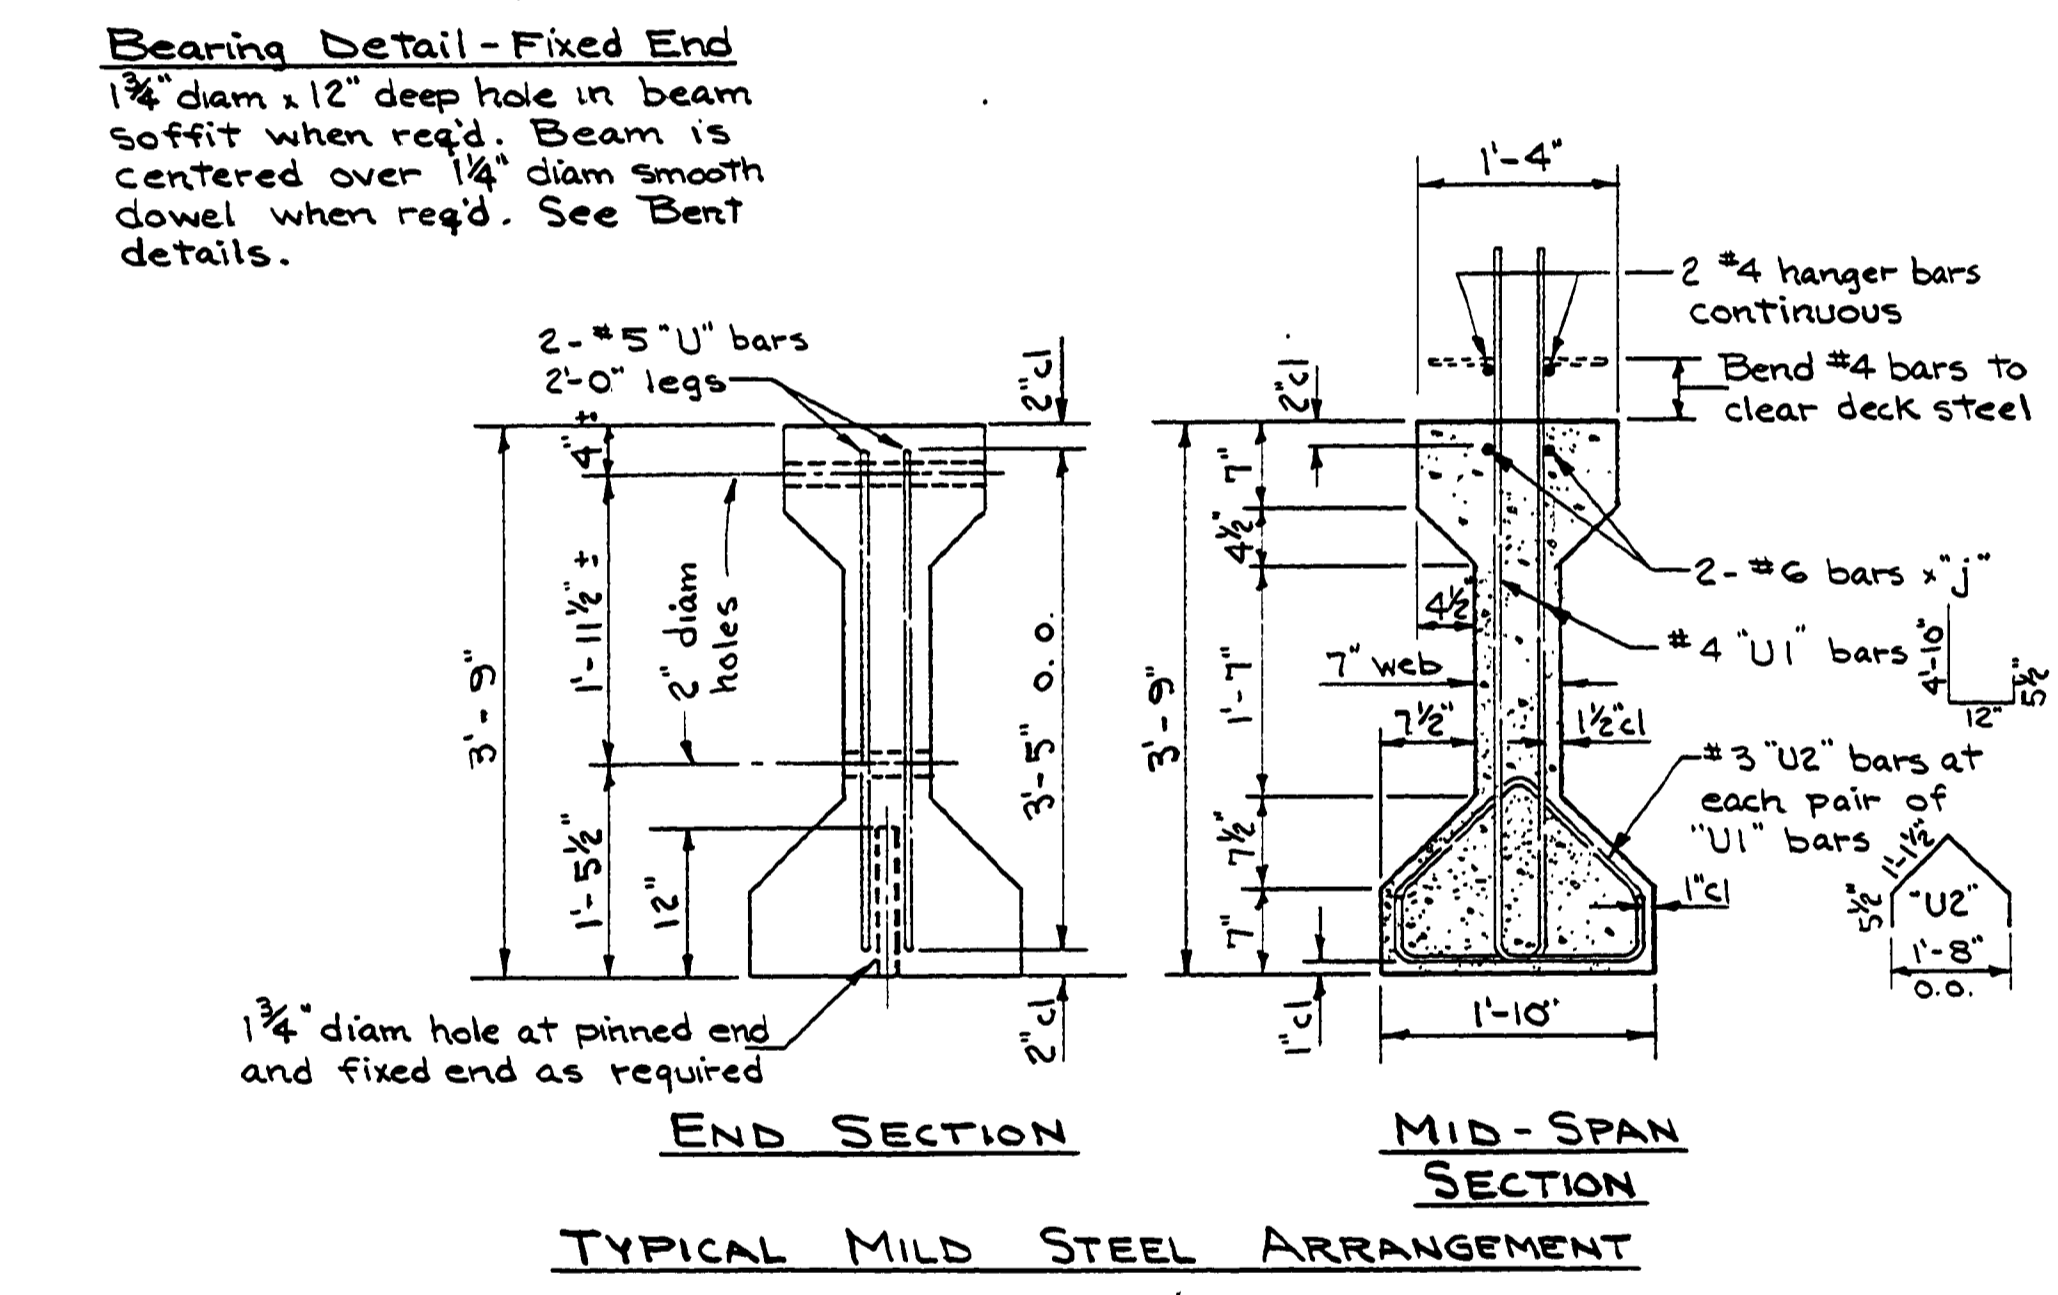 Bearing Detail - Fixed End
1 3/4" diam x 12" deep hole in beam
soffit when req'd. Beam is
centered over 1 1/4" diam smooth
dowel when req'd. See Bent
details.
2 - #5 "U" bars
2'-0" legs
2" cl
4" ±
1'-11 1/2" ±
3'-9"
2" diam
holes
3'-5" o.o.
1'-5 1/2"
12"
2" cl
1 3/4" diam hole at pinned end
and fixed end as required
END SECTION
1'-4"
2 #4 hanger bars
continuous
Bend #4 bars to
clear deck steel
2" cl
7"
4 1/2"
4 1/2
2 - #6 bars x "j"
#4 "U1" bars
4'-10"
5 1/2"
12"
7" web
3'-9"
1'-7"
7 1/2"
1 1/2" cl
#3 "U2" bars at
each pair of
"U1" bars
1'-1 1/2"
5 1/2"
"U2"
1'-8"
o.o.
7 1/2"
1" cl
7"
1" cl
1'-10"
MID - SPAN
SECTION
TYPICAL MILD STEEL ARRANGEMENT